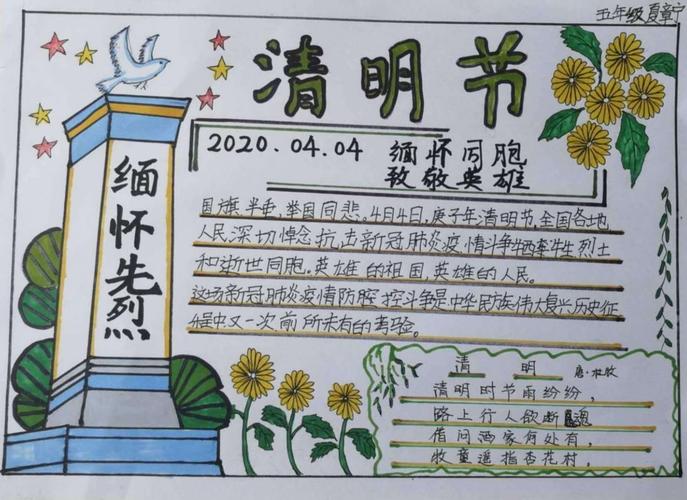 五年级 夏章宁
清明节
2020.04.04 缅怀同胞
致敬英雄
缅怀先烈
国旗半垂,举国同悲。4月4日,庚子年清明节,全国各地
人民深切悼念抗击新冠肺炎疫情斗争牺牲烈士
和逝世同胞。英雄的祖国,英雄的人民。
这场新冠肺炎疫情防腔控斗争是中华民族伟大复兴历史征
程中又一次前所未有的考验。
清 明 唐·杜牧
清明时节雨纷纷,
路上行人欲断魂
借问酒家何处有,
牧童遥指杏花村,